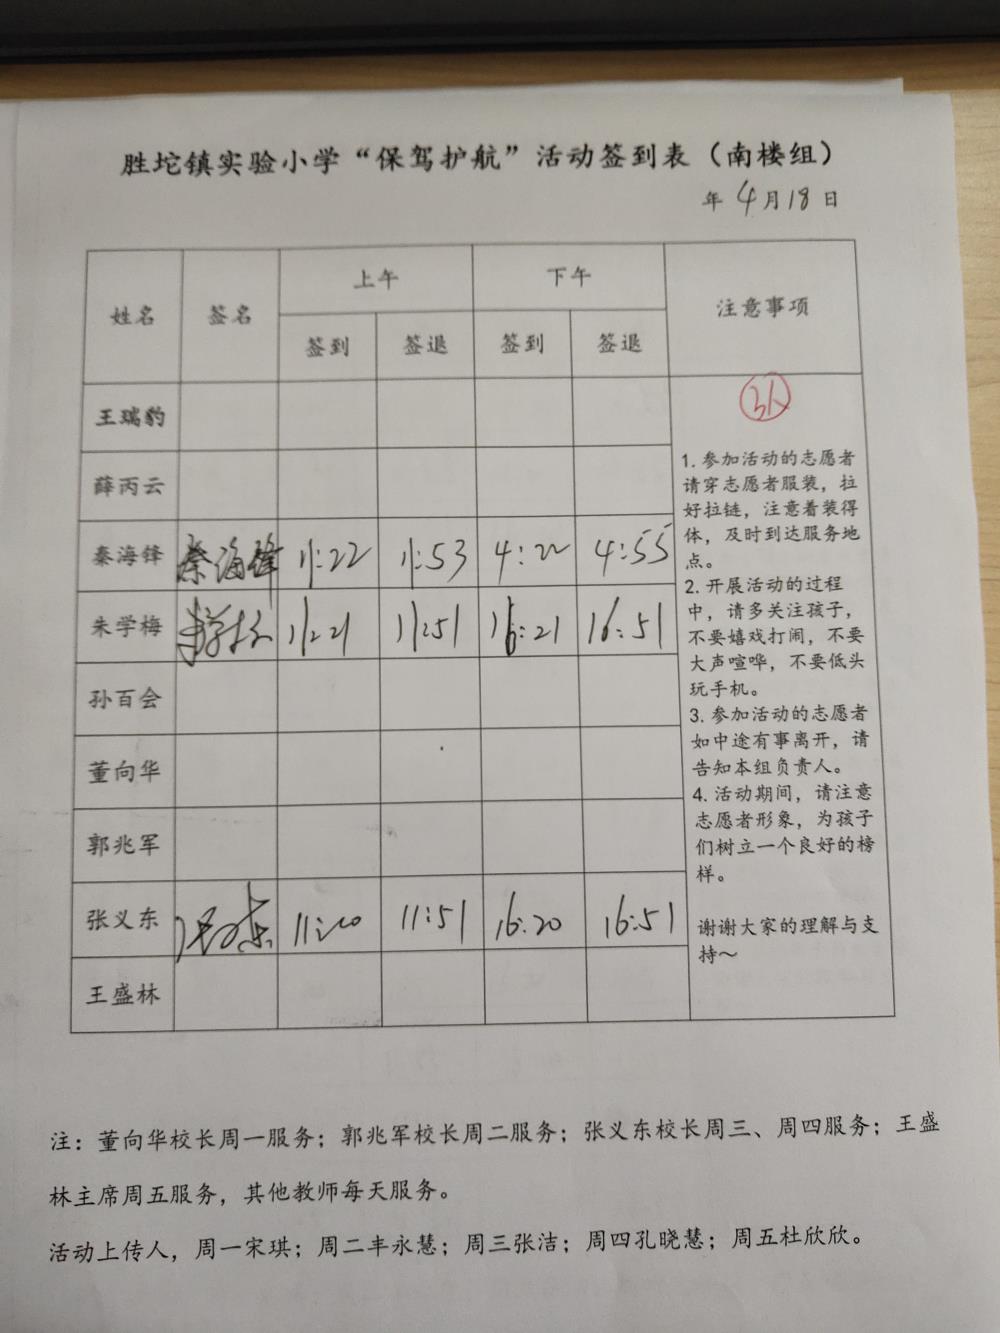 胜坨镇实验小学“保驾护航”活动签到表（南楼组）
年 4月18日
姓名 签名 上午 下午 注意事项
签到 签退 签到 签退
王瑞豹
薛丙云
秦海锋 秦海锋 11:22 11:53 4:22 4:55
朱学梅 朱学梅 11:21 11:51 16:21 16:51
孙百会
董向华
郭兆军
张义东 张义东 11:20 11:51 16:20 16:51
王盛林
3人
1. 参加活动的志愿者
请穿志愿者服装，拉
好拉链，注意着装得
体，及时到达服务地
点。
2. 开展活动的过程
中，请多关注孩子，
不要嬉戏打闹，不要
大声喧哗，不要低头
玩手机。
3. 参加活动的志愿者
如中途有事离开，请
告知本组负责人。
4. 活动期间，请注意
志愿者形象，为孩子
们树立一个良好的榜
样。
谢谢大家的理解与支
持～
注：董向华校长周一服务；郭兆军校长周二服务；张义东校长周三、周四服务；王盛
林主席周五服务，其他教师每天服务。
活动上传人，周一宋琪；周二丰永慧；周三张洁；周四孔晓慧；周五杜欣欣。